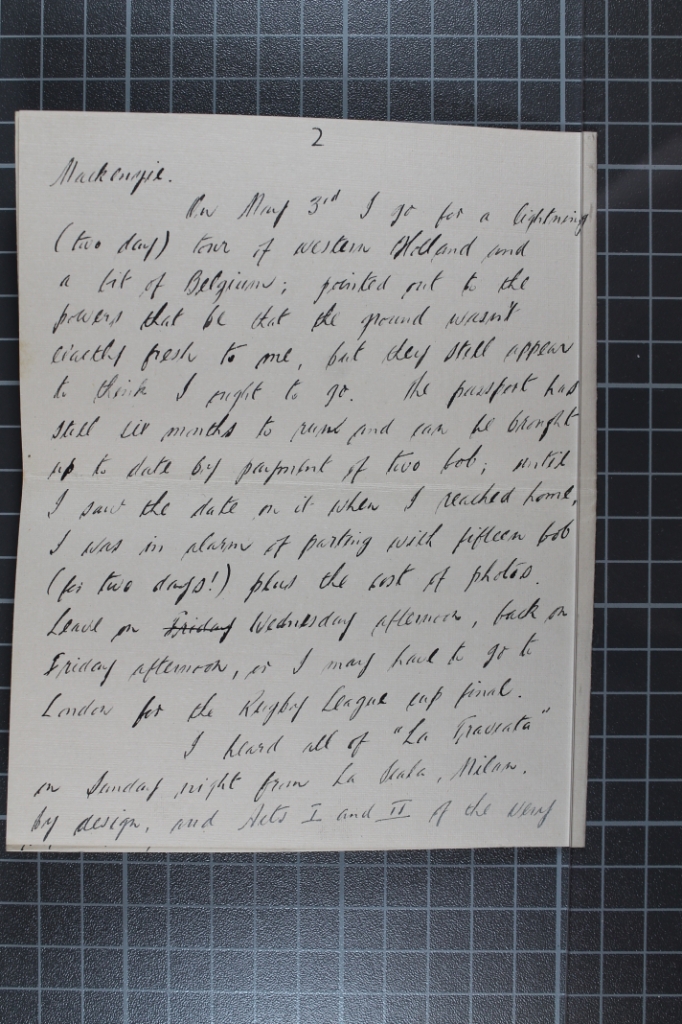 2
Mackenzie.
On May 3rd I go for a lightning
(two day) tour of western Holland and
a bit of Belgium; pointed out to the
powers that be that the ground wasn't
exactly fresh to me, but they still appear
to think I ought to go. The passport has
still six months to run and can be brought
up to date by payment of two bob; until
I saw the date on it when I reached home,
I was in alarm of parting with fifteen bob
(for two days!) plus the cost of photos.
Leave on Friday Wednesday afternoon, back on
Friday afternoon, or I may have to go to
London for the Rugby League cup final.
I heard all of "La Traviata"
on Sunday night from La Scala, Milan.
by design, and Acts I and II of the very